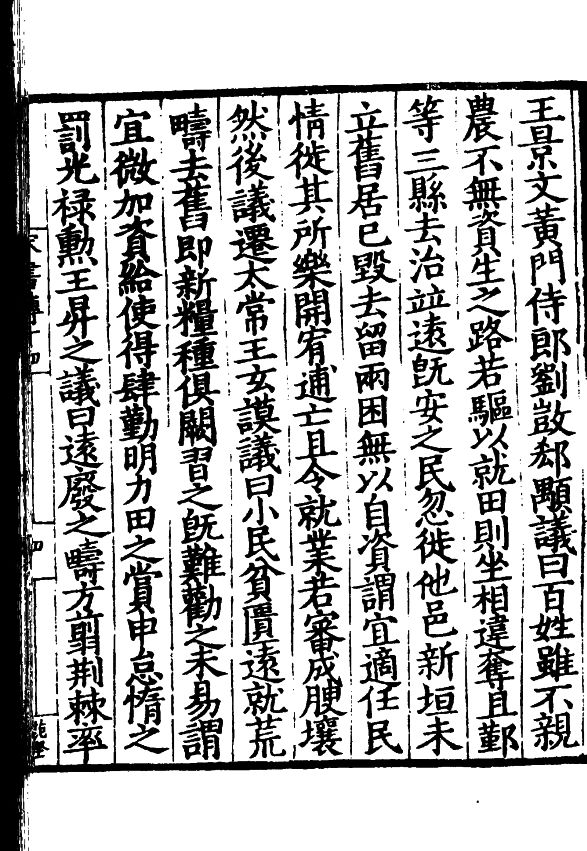 王景文黃門侍郎劉敳郄顒議曰百姓雖不親
農不無資生之路若驅以就田則坐相違奪且鄞
等三縣去治竝遠旣安之民忽徙他邑新垣未
立舊居已毀去留兩困無以自資謂宜適任民
情徙其所樂開宥逋亡且令就業若審成腴壤
然後議遷太常王玄謨議曰小民貧匱遠就荒
疇去舊即新糧種俱闕習之旣難勸之未易謂
宜微加資給使得肆勤明力田之賞申怠惰之
罰光祿勳王昇之議曰遠廢之疇方翦荆棘率
宋書傳十四
四